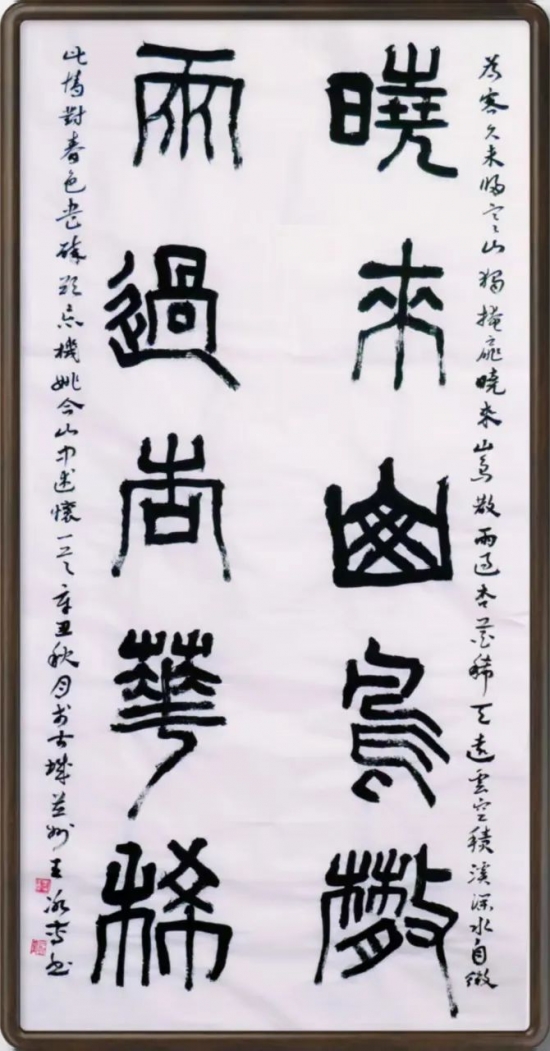 為客久未歸空山獨掩扉曉來山鳥散雨過杏花稀天遠雲空積溪深水自微
曉來山鳥散
雨過杏華稀
此情對春色盡醉欲忘機姚合山中述懷辛丑秋月於古城並州王